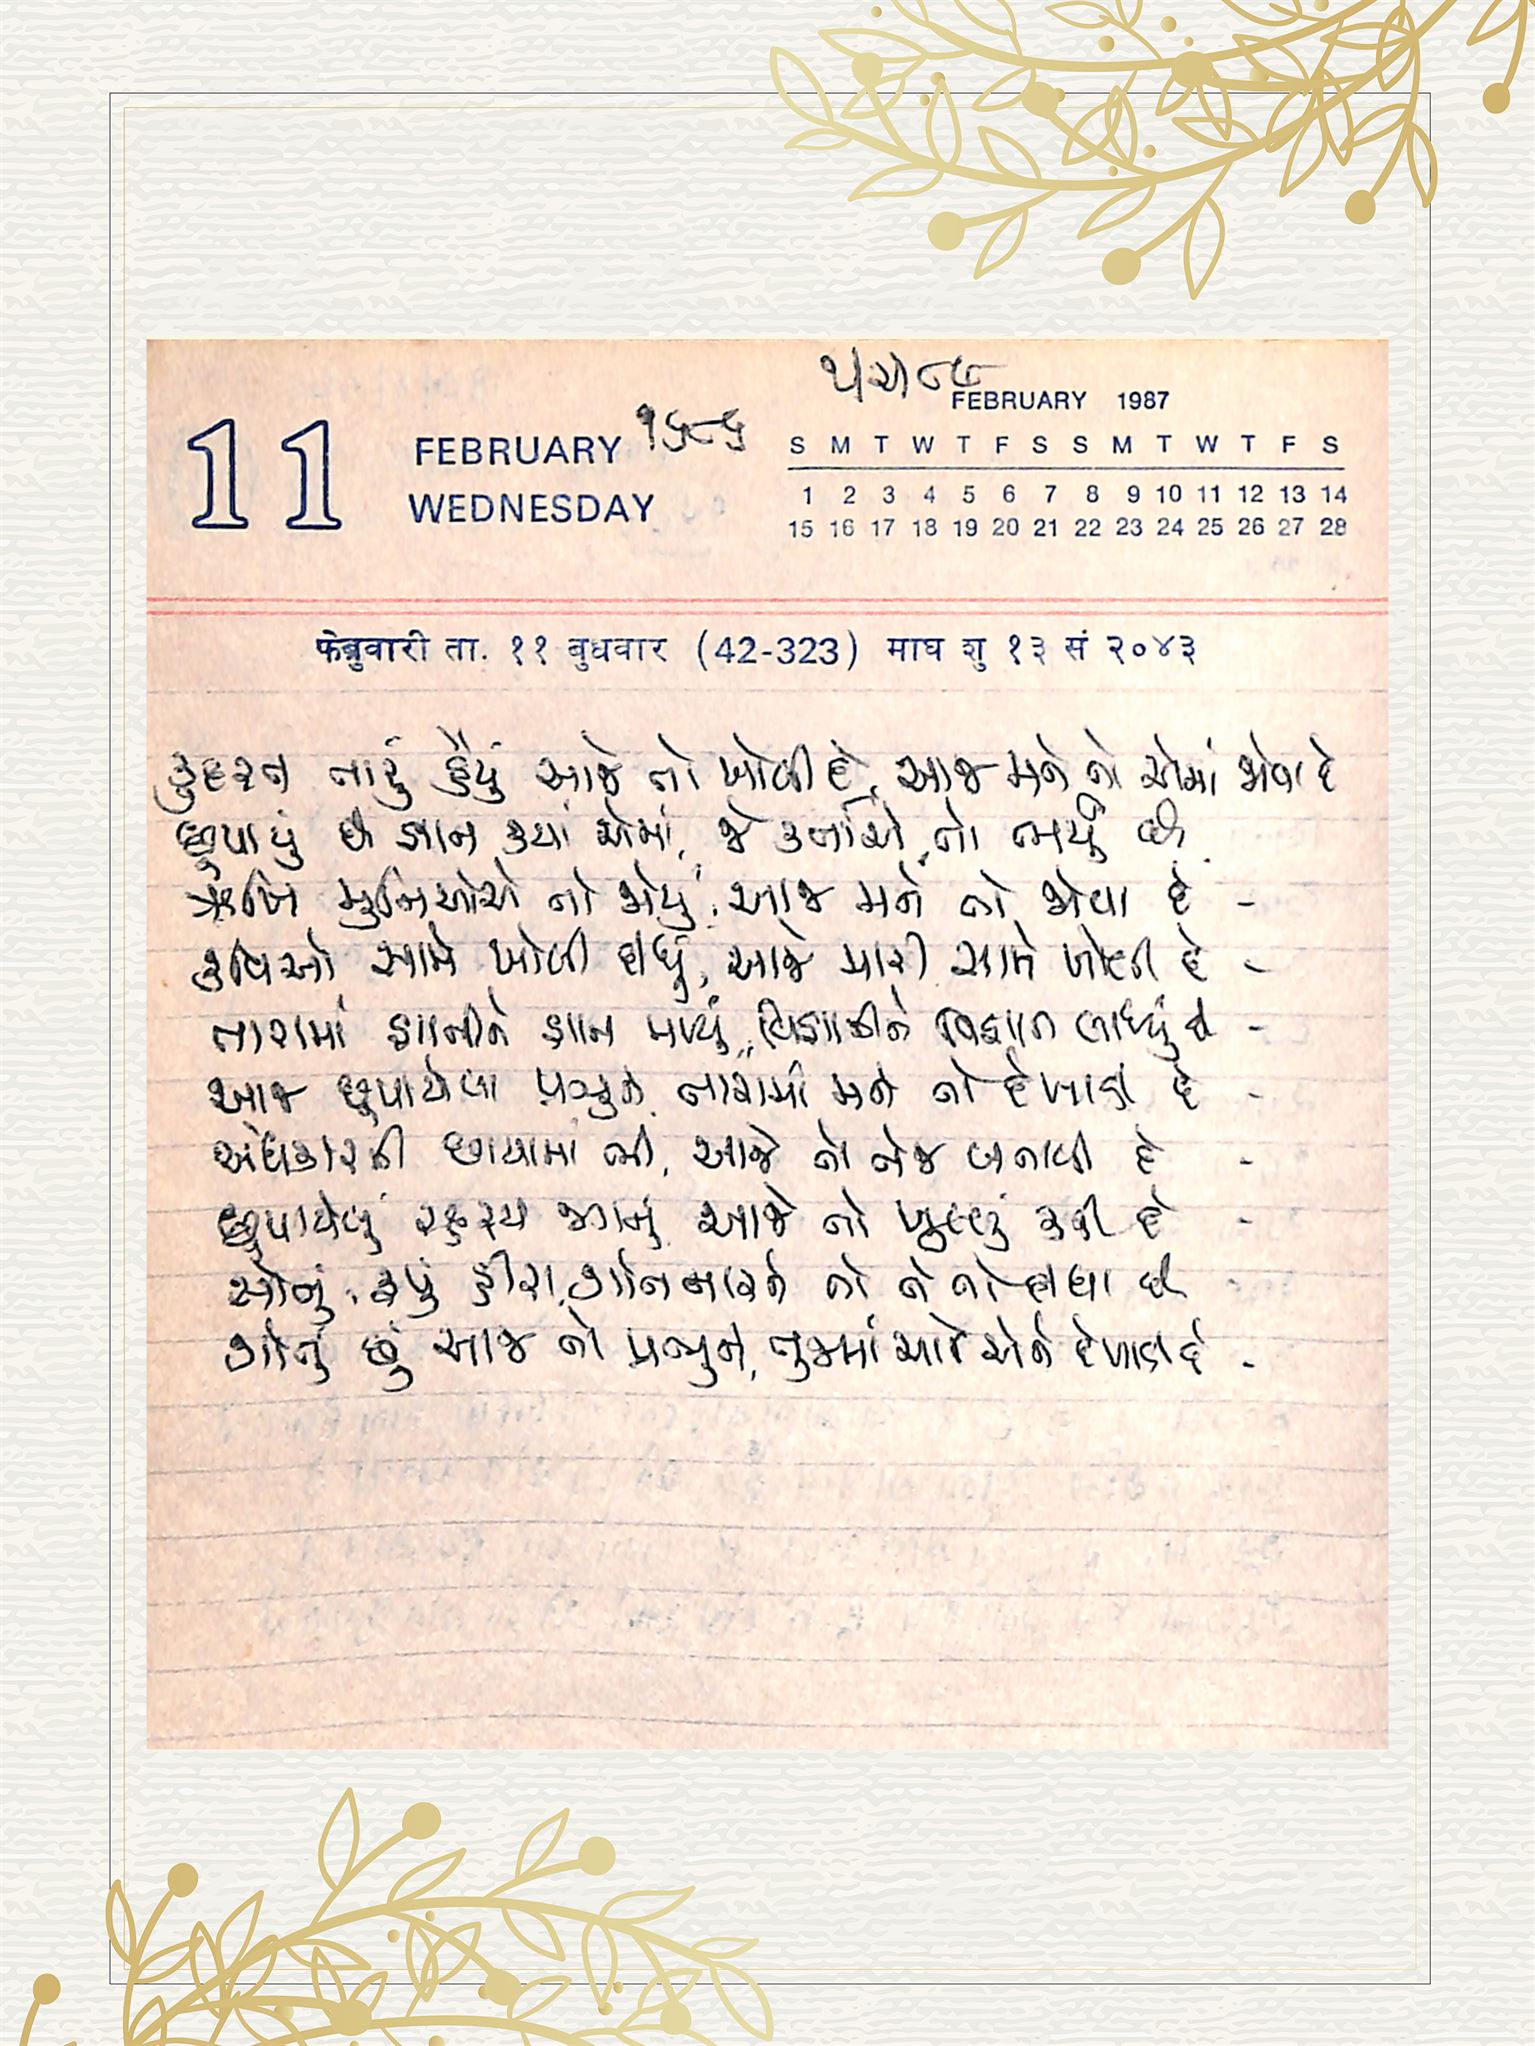 FEBRUARY 1987
11 FEBRUARY
WEDNESDAY
S M T W T F S S M T W T F S
1 2 3 4 5 6 7 8 9 10 11 12 13 14
15 16 17 18 19 20 21 22 23 24 25 26 27 28
फेब्रुवारी ता. ११ बुधवार (42-323) माघ शु १३ सं २०४३
કુદરત તારું હૈયું આજે તો ખોલી દે, આજ મને તો એમાં જોવા દે
છુપાયું છે જ્ઞાન ક્યાં એમાં, જે કર્તાએ તો ભર્યું છે
ઋષિ મુનિઓએ તો જોયું, આજ મને તો જોવા દે -
કવિઓ સામે ખોલી દીધું, આજે મારી સામે ખોલી દે -
તારામાં જ્ઞાનીને જ્ઞાન મળ્યું, વિજ્ઞાનીને વિજ્ઞાન લાધ્યું છે -
આજ છુપાયેલા પ્રભુને, તારામાં મને તો દેખાડી દે -
અંધકારની છાયામાં ભી, આજે તો તેજ બનાવી દે -
છુપાયેલું રહસ્ય જગનું આજે તો ખુલ્લું કરી દે -
સોનું, રૂપું હીરા, ગોતનારને તો તે તો દીધા છે
ગોતું છું આજ તો પ્રભુને, તુજમાં આજે એને દેખાડી દે -